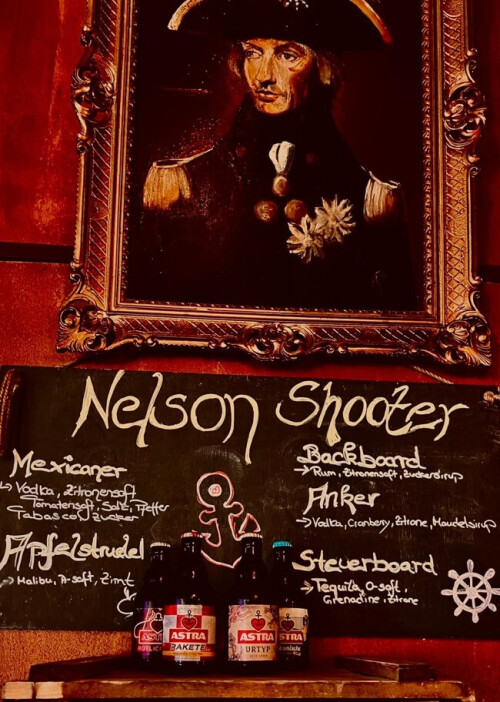 Nelson Shooter
Mexicaner
↳ Vodka, Zitronensaft
Tomatensaft, Salz, Pfeffer
Tabasco n Zucker
Apfelstrudel
→ Malibu, A-saft, Zimt
Backboard
→ Rum, Zitronensaft, Zuckersirup
Anker
→ Vodka, Cranberry, Zitrone, Mandelsirup
Steuerboard
→ Tequila, O-saft,
Grenadine, Zitrone
ASTRA
ROTLICHT
ASTRA
RAKETE
ASTRA
URTYP
ASTRA